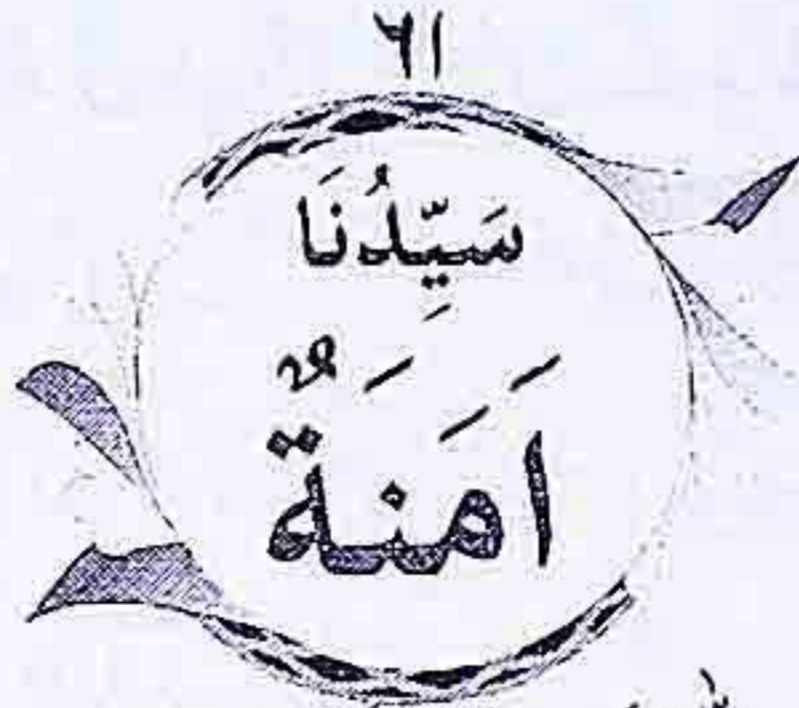 ۶۱
سَيِّدُنَا
اَمَنَةٌ